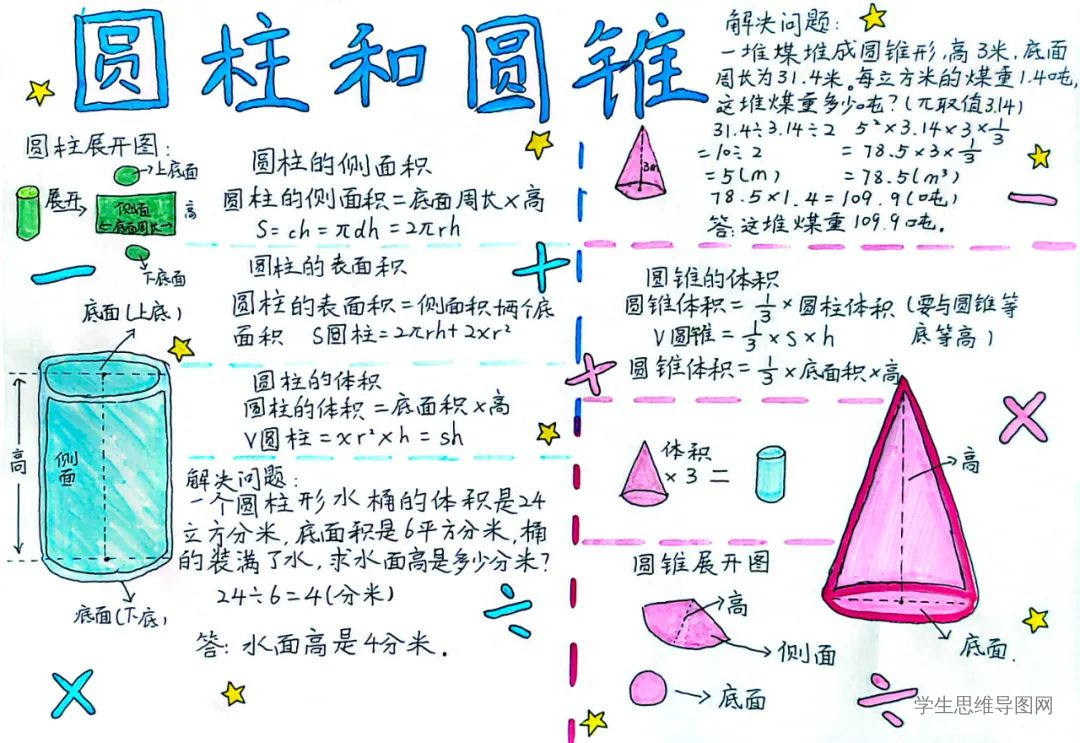 圆柱和圆锥
圆柱展开图:
上底面
展开
侧面
底面周长
高
下底面
底面(上底)
高
侧面
底面(下底)
圆柱的侧面积
圆柱的侧面积=底面周长×高
S=ch=πdh=2πrh
圆柱的表面积
圆柱的表面积=侧面积+两个底
面积 S圆柱=2πrh+2xr²
圆柱的体积
圆柱的体积=底面积×高
V圆柱=xr²×h=sh
解决问题:
一个圆柱形水桶的体积是24
立方分米,底面积是6平方分米,桶
的装满了水,求水面高是多少分米?
24÷6=4(分米)
答:水面高是4分米.
解决问题:
一堆煤堆成圆锥形,高3米,底面
周长为31.4米。每立方米的煤重1.4吨,
这堆煤重多少吨?(π取值3.14)
3m
31.4÷3.14÷2 5²×3.14×3×1/3
=10÷2 =78.5×3×1/3
=5(m) =78.5(m³)
78.5×1.4=109.9(吨)
答:这堆煤重109.9吨.
圆锥的体积
圆锥体积=1/3×圆柱体积(要与圆锥等
V圆锥=1/3×s×h 底等高)
圆锥体积=1/3×底面积×高
体积
×3=
高
底面.
圆锥展开图
高
侧面
底面
学生思维导图网